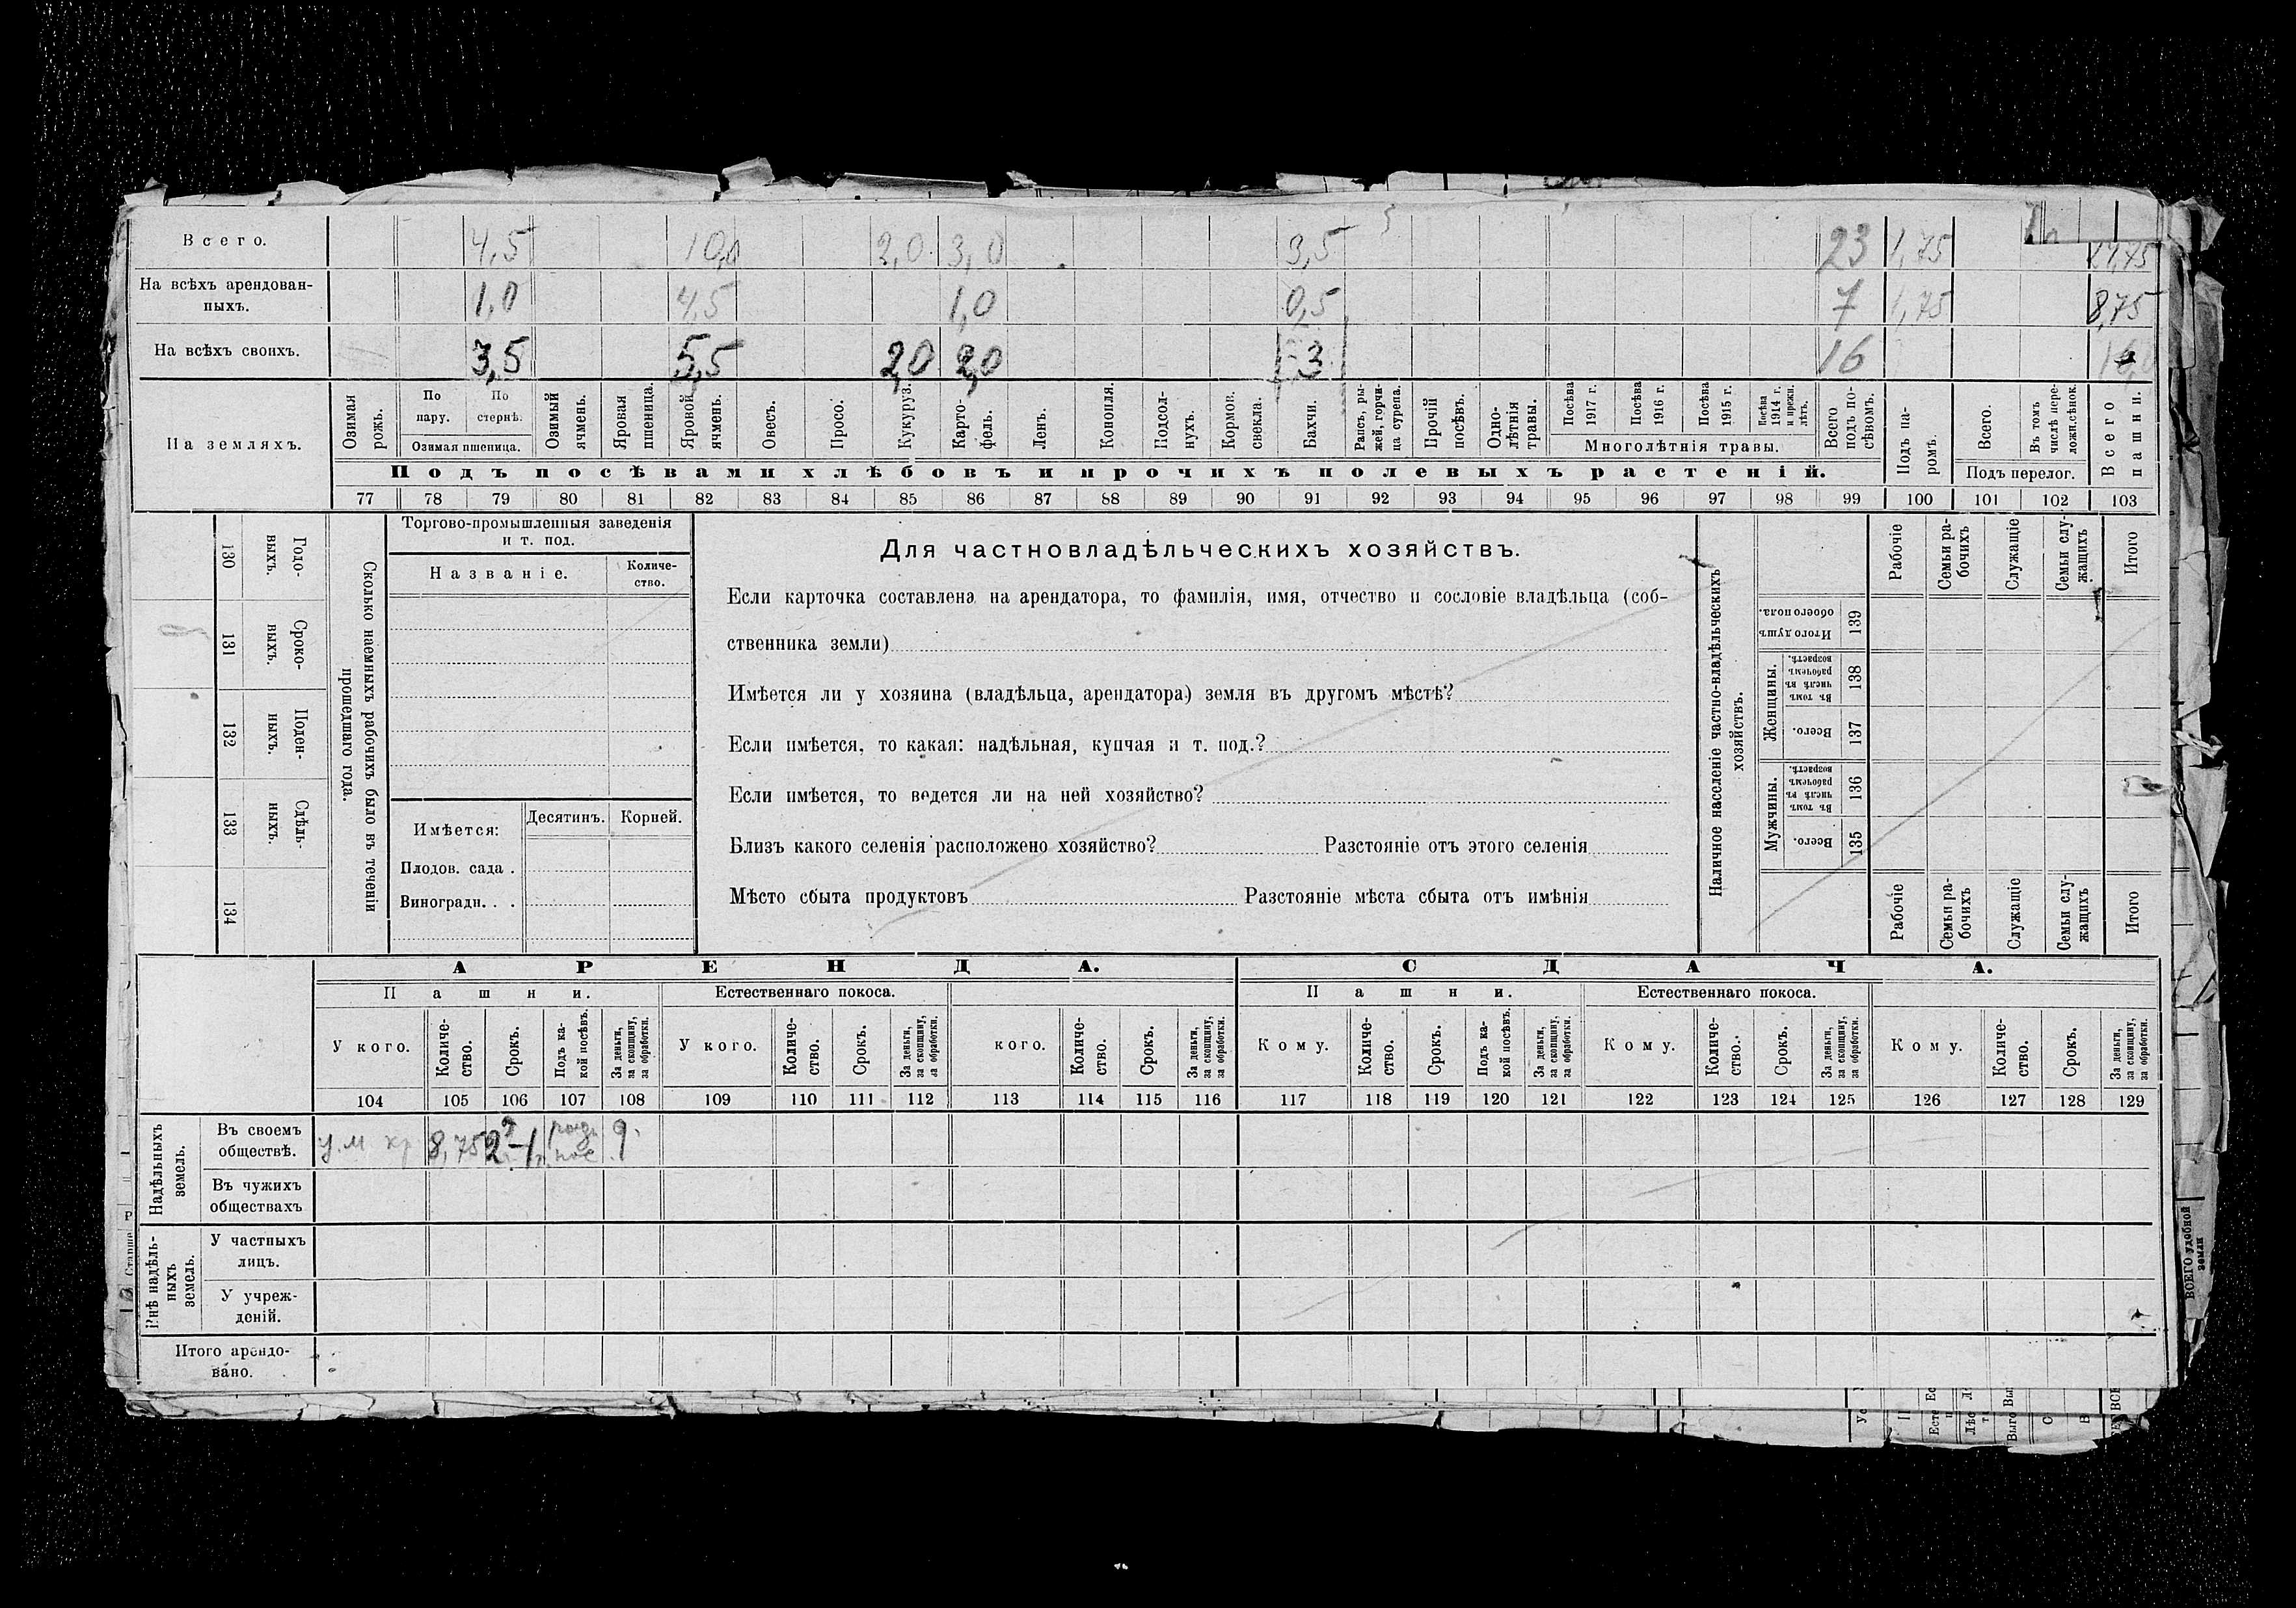 Всего. 4,5 10,0 2,0 3,0 3,5 23 1,75
На всѣхъ арендован-
ныхъ. 1,0 4,5 1,0 0,5 7 1,75 8,75
На всѣхъ своихъ. 3,5 5,5 2,0 2,0 3 16
На земляхъ.
Озимая рожь.
По пару.
По стернѣ.
Озимая пшеница.
Озимый ячмень.
Яровая пшеница.
Яровой ячмень.
Овесъ.
Просо.
Кукуруз.
Карто-
фель.
Ленъ.
Конопля.
Подсол-
нухъ.
Кормов. свекла.
Бахчи.
Рапсъ, ры-
жей, горчи-
ца сурепа.
Прочій посѣвъ.
Одно-
лѣтнія травы.
Посѣва 1917 г.
Посѣва 1916 г.
Посѣва 1915 г.
Посѣва 1914 г. и прежн. лѣтъ.
Многолѣтнія травы.
Всего подъ по-
сѣвомъ.
Подъ па-
ромъ.
Всего.
Въ томъ числѣ пере-
ложн. сѣнок.
Подъ перелог.
Всего пашни.
Подъ посѣвами хлѣбовъ и прочихъ полевыхъ растеній.
77 78 79 80 81 82 83 84 85 86 87 88 89 90 91 92 93 94 95 96 97 98 99 100 101 102 103
Годо-
выхъ.
130
Сроко-
выхъ.
131
Поден-
ныхъ.
132
Сдѣль-
ныхъ.
133
134
Сколько наемныхъ рабочихъ было въ теченіи
прошедшаго года.
Торгово-промышленныя заведенія
и т. под.
Названіе.
Количе-
ство.
Имѣется:
Десятинъ.
Корней.
Плодов. сада .
Виноградн. . .
Для частновладѣльческихъ хозяйствъ.
Если карточка составлена на арендатора, то фамилія, имя, отчество и сословіе владѣльца (соб-
ственника земли)
Имѣется ли у хозяина (владѣльца, арендатора) земля въ другомъ мѣстѣ?
Если имѣется, то какая: надѣльная, купчая и т. под.?
Если имѣется, то ведется ли на ней хозяйство?
Близъ какого селенія расположено хозяйство? Разстояніе отъ этого селенія
Мѣсто сбыта продуктовъ Разстояніе мѣста сбыта отъ имѣнія
Наличное населеніе частно-владѣльческихъ
хозяйствъ.
Рабочіе
Семьи ра-
бочихъ
Служащіе
Семьи слу-
жащихъ
Итого
Итого душъ обоего пола.
139
Женщины.
Въ томъ числѣ въ рабочемъ возрастѣ.
138
Всего.
137
Мужчины.
Въ томъ числѣ въ рабочемъ возрастѣ.
136
Всего.
135
Рабочіе
Семьи ра-
бочихъ
Служащіе
Семьи слу-
жащихъ
Итого
АРЕНДА. СДАЧА.
Пашни. Естественнаго покоса. Пашни. Естественнаго покоса.
У кого.
Количе-
ство.
Срокъ.
Подъ ка-
кой посѣвъ.
За деньги, за скопщину, за обработки.
У кого.
Количе-
ство.
Срокъ.
За деньги, за скопщину, за обработки.
кого.
Количе-
ство.
Срокъ.
За деньги, за скопщину, за обработки.
Кому.
Количе-
ство.
Срокъ.
Подъ ка-
кой посѣвъ.
За деньги, за скопщину, за обработки.
Кому.
Количе-
ство.
Срокъ.
За деньги, за скопщину, за обработки.
Кому.
Количе-
ство.
Срокъ.
За деньги, за скопщину, за обработки.
104 105 106 107 108 109 110 111 112 113 114 115 116 117 118 119 120 121 122 123 124 125 126 127 128 129
Надѣльныхъ
земель.
Въ своемъ
обществѣ.
8,75
Въ чужихъ
обществахъ
Внѣ надѣль-
ныхъ
земель.
У частныхъ
лицъ.
У учреж-
деній.
Итого арендо-
вано.
ВСЕГО удобной
земли